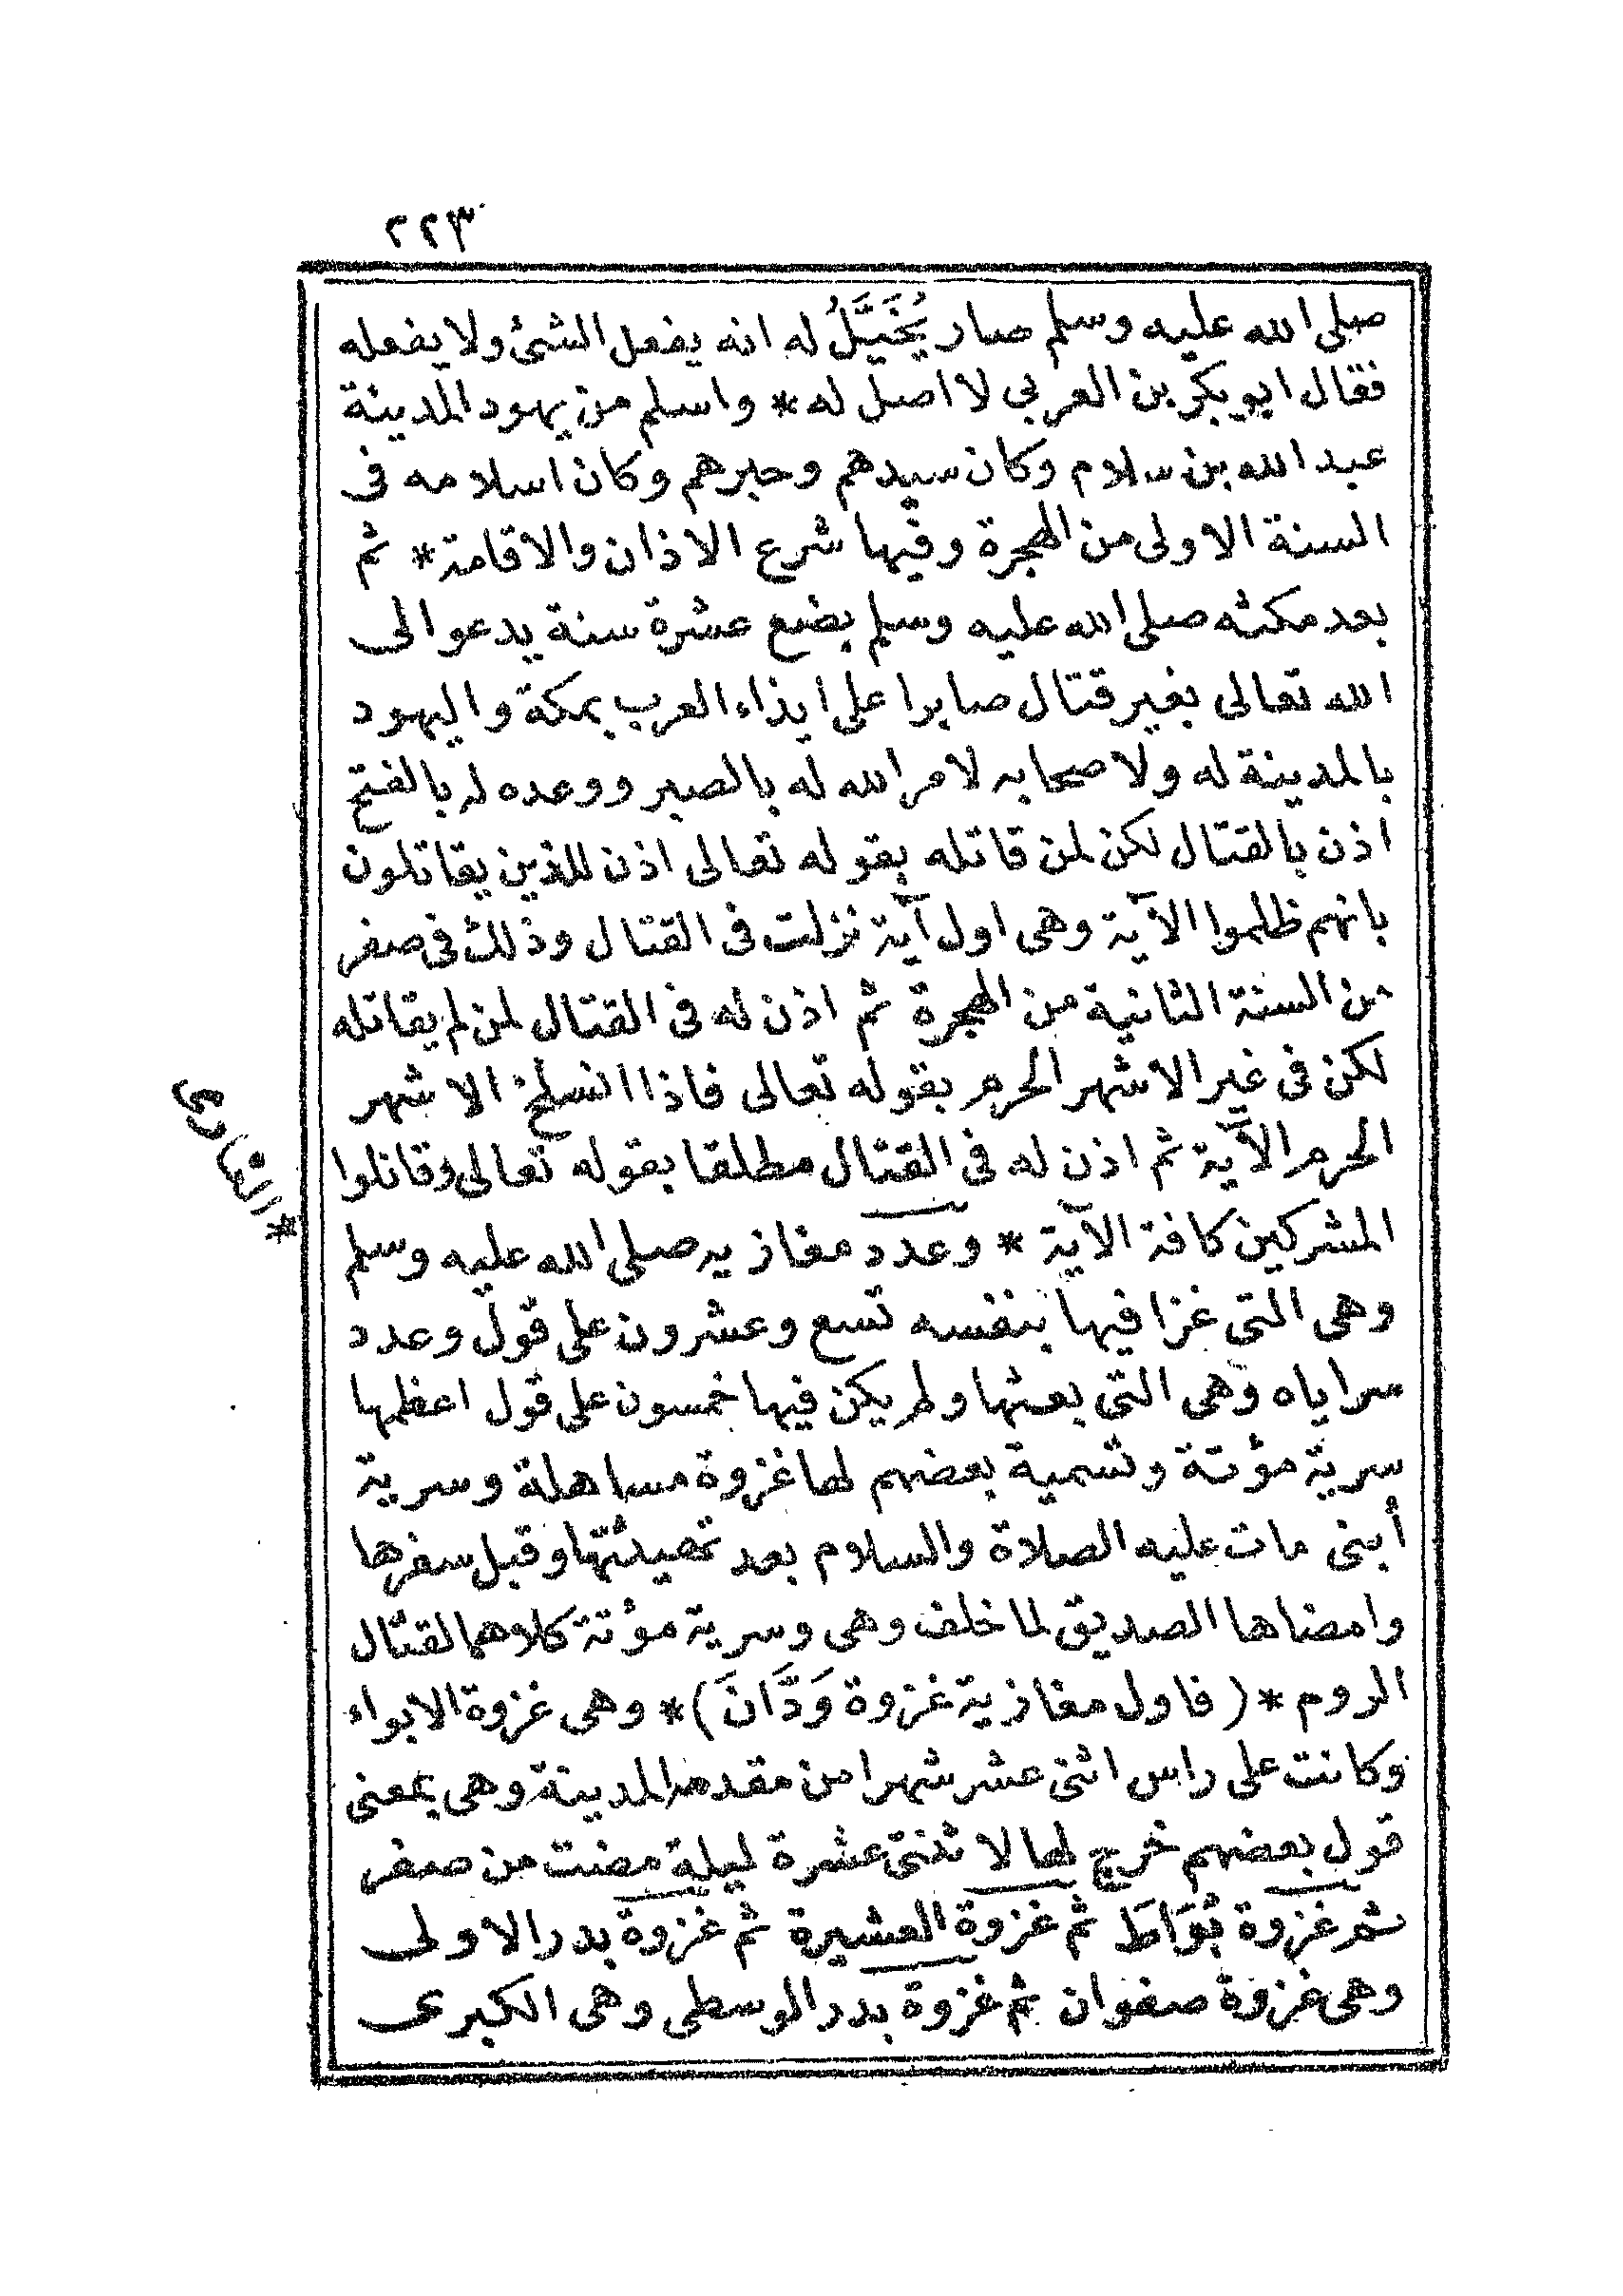 ٢٢٣
صلى الله عليه وسلم صار يُخَيَّلُ له انه يفعل الشئ ولا يفعله
فقال ابو بكر بن العربي لا اصل له * واسلم من يهود المدينة
عبد الله بن سلام وكان سيدهم وحبرهم وكان اسلامه فى
السنة الاولى من الهجرة وفيها شرع الاذان والاقامة * ثم
بعد مكثه صلى الله عليه وسلم بضع عشرة سنة يدعو الى
الله تعالى بغير قتال صابرا على ايذاء العرب بمكة واليهود
بالمدينة له ولا صحابه لامر الله له بالصبر ووعده له بالفتح
اذن بالقتال لكن لمن قاتله بقوله تعالى اذن للذين يقاتلون
بانهم ظلموا الآية وهى اول آية نزلت فى القتال وذلك فى صفر
من السنة الثانية من الهجرة ثم اذن له فى القتال لمن لم يقاتله
لكن فى غير الاشهر الحرم بقوله تعالى فاذا انسلخ الاشهر
الحرم الآية ثم اذن له فى القتال مطلقا بقوله تعالى وقاتلوا
المشركين كافة الآية * وعدد مغازيه صلى الله عليه وسلم
* المغازى
وهى التى غزا فيها بنفسه تسع وعشرون على قول وعدد
سراياه وهى التى بعثها ولم يكن فيها خمسون على قول اعظمها
سرية مؤتة وتسمية بعضهم لها غزوة مساهلة وسرية
أبنى مات عليه الصلاة والسلام بعد تهيئتها وقبل سفرها
وامضاها الصديق لما خلف وهى وسرية مؤتة كلاهما لقتال
الروم * (فاول مغازية غزوة وَدَّانَ) * وهى غزوة الابواء
وكانت على راس اثنى عشر شهرا من مقدمه المدينة وهى بمعنى
قول بعضهم خرج لها لاثنتى عشرة ليلة مضت من صفر
ثم غزوة بُوَاطَ ثم غزوة العشيرة ثم غزوة بدر الاولى
وهى غزوة صفوان ثم غزوة بدر الوسطى وهى الكبرى